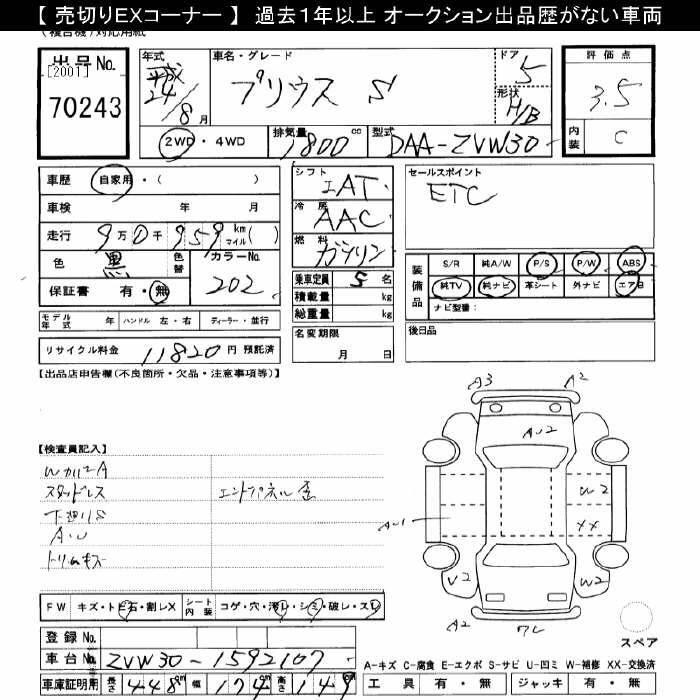 【 売切りEXコーナー 】 過去1年以上 オークション出品歴がない車両
出品No.
[2001]
70243
年式
平成
24/8月
車名・グレード
プリウス S
ドア
5
形状
H/B
評価点
3.5
内装
C
2WD・4WD
排気量
1800cc
型式
DAA-ZVW30
車歴 自家用・( )
車検 年 月
走行 9万0千959km マイル( )
色 黒
色替
カラーNo.
202
保証書 有・無
シフト
IAT
冷房
AAC
燃料
ガソリン
乗車定員 5名
積載量 kg
総重量 kg
セールスポイント
ETC
装備品
S/R 純A/W P/S P/W ABS
純TV 純ナビ 革シート 外ナビ エアB
ナビ型番:
モデル年式 年 ハンドル 左・右 ディーラー・並行
リサイクル料金 11820円 預託済
名変期限
月 日
後日品
【出品店申告欄(不良箇所・欠品・注意事項等)】
A3 A2
AU2
【検査員記入】
WカリマA
スタッドレス
下廻りS
A.U
トリムキズ
エンドパネル歪
W2
AU1
XX
V2
W2
A2
FW キズ・トビ石・割レX
シート内装 コゲ・穴・汚レ・シミ・破レ・スレ
登録No.
車台No. ZVW30-1592107
車庫証明用 長さ448cm 幅174cm 高さ149cm
スペア
A-キズ C-腐食 E-エクボ S-サビ U-凹ミ W-補修 XX-交換済
工具 有・無 ジャッキ 有・無